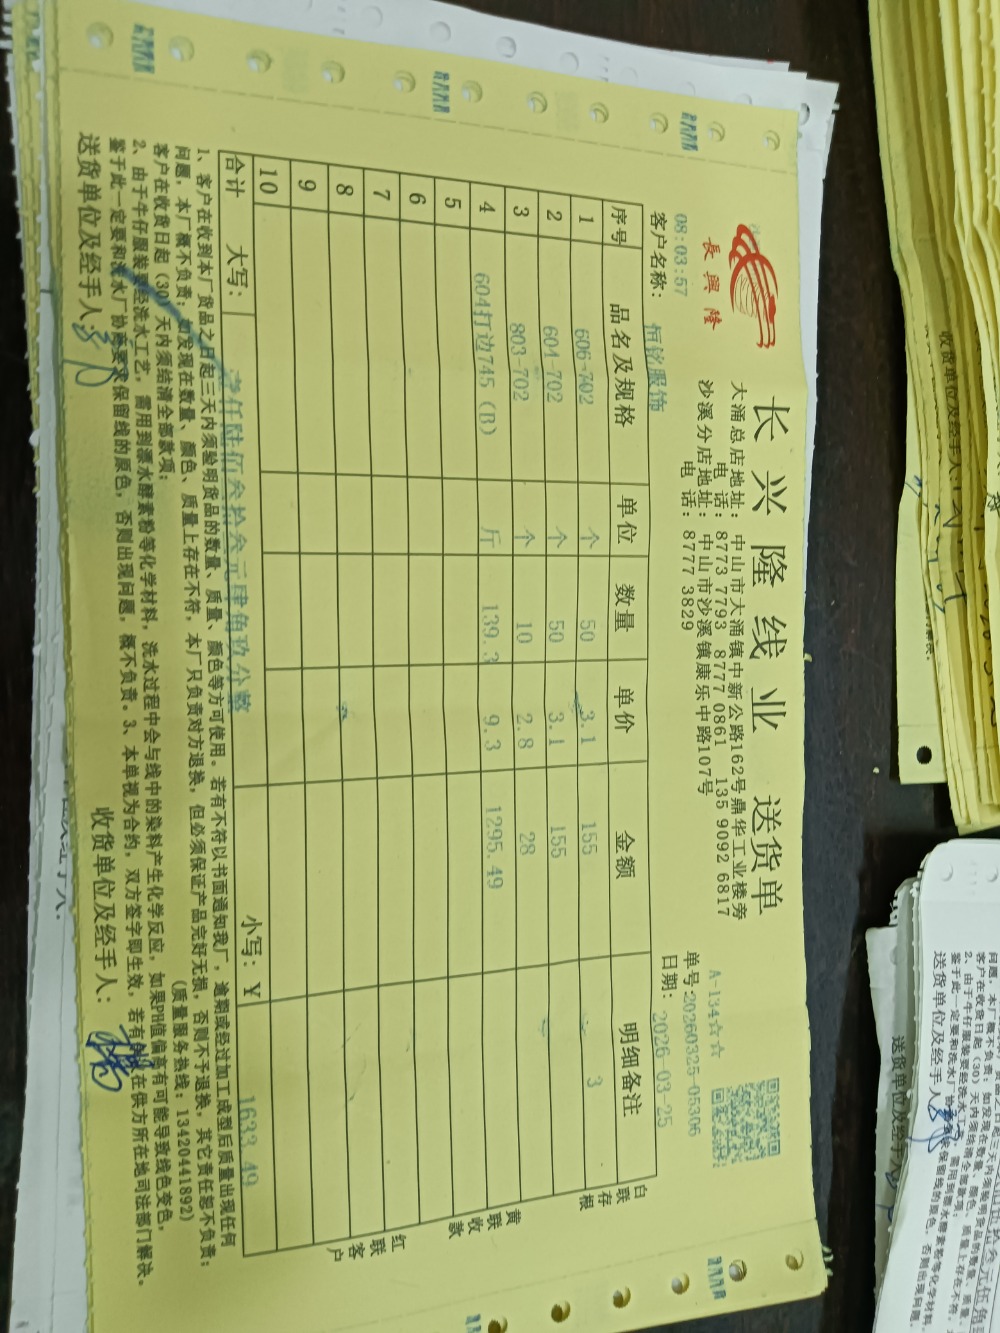 长兴隆线业 送货单
長興隆
大涌总店地址：中山市大涌镇中新公路162号鼎华工业楼旁
电话：8773 7793 8777 0861 135 9092 6817
沙溪分店地址：中山市沙溪镇康乐中路107号
电话：8777 3829
A-134☆☆
单号:20260325-05306
08:03:57
客户名称：恒铭服饰
日期：2026-03-25
序号 品名及规格 单位 数量 单价 金额 明细备注
1 606-702 个 50 3.1 155 3
2 604-702 个 50 3.1 155
3 803-702 个 10 2.8 28
4 604打边745（B） 斤 139.3 9.3 1295.49
5
6
7
8
9
10
合计 大写：壹仟陆佰叁拾叁元肆角玖分整 小写：￥ 1633.49
白联存根
黄联收款
红联客户
1、客户在收到本厂货品之日起三天内须验明货品的数量、质量、颜色等方可使用。若有不符以书面通知我厂，逾期或经过加工成型后质量出现任何
问题，本厂概不负责；如发现在数量、颜色、质量上存在不符，本厂只负责对方退换，但必须保证产品完好无损，否则不予退换，其它责任恕不负责；
客户在收货日起（30）天内须结清全部款项； （质量服务热线：13420441892）
2、由于牛仔服装要经洗水工艺，需用到漂水酵素粉等化学材料，洗水过程中会与线中的染料产生化学反应，如果PH值偏高有可能导致线色变色，
鉴于此一定要和洗水厂协商要求保留线的原色，否则出现问题，概不负责。3、本单视为合约，双方签字即生效，若有 在供方所在地司法部门解决。
送货单位及经手人： 收货单位及经手人：
收货单位及经手人：
送货单位及经手人
送货单位及经手人